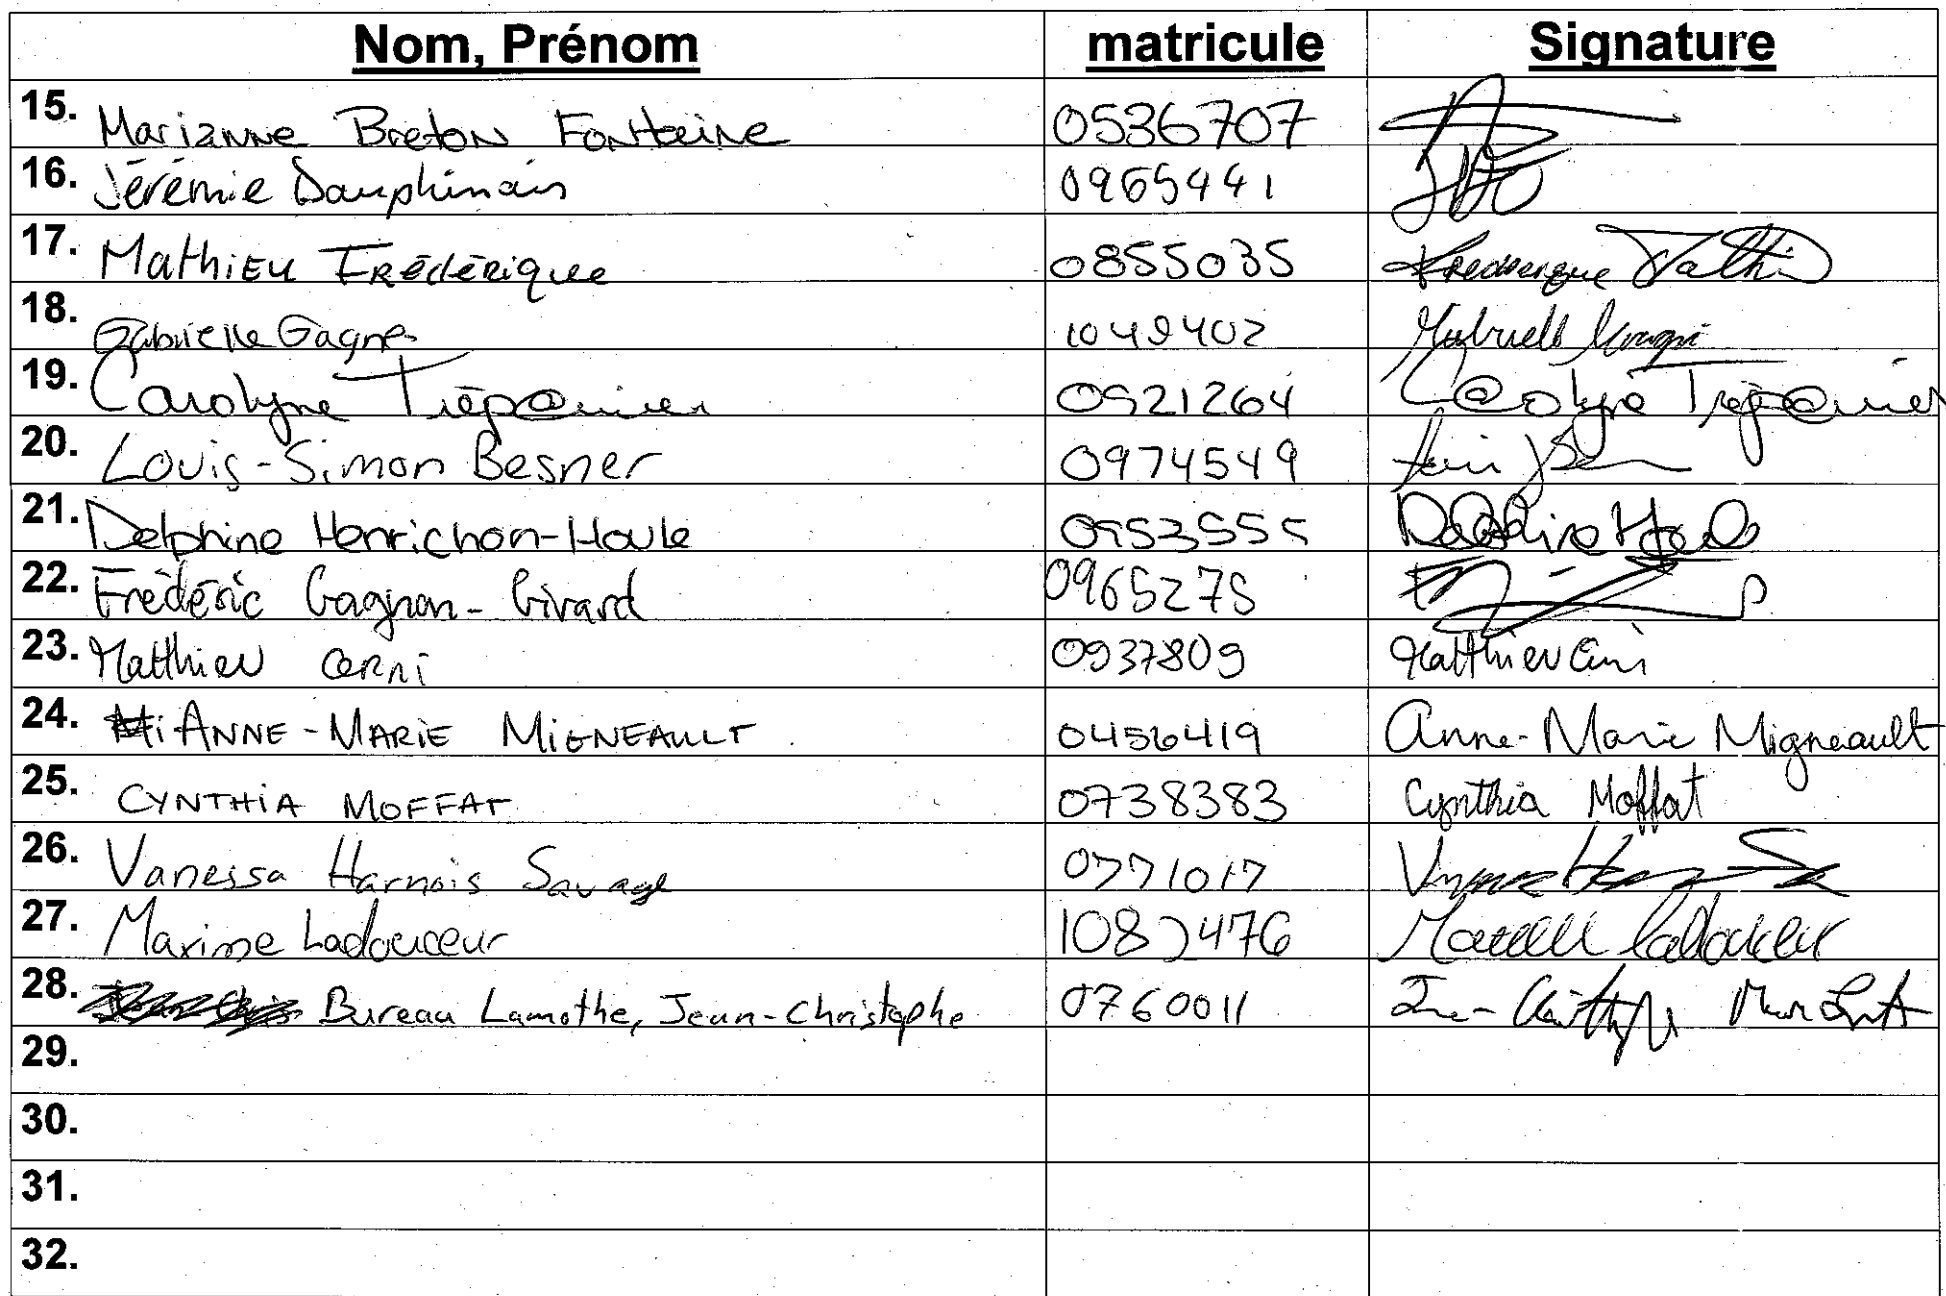 Nom, Prénom matricule Signature
15. Marianne Breton Fontaine 0536707
16. Jérémie Dauphinais 0965441
17. Mathieu Frédérique 0855035 Frédérique Mathieu
18. Gabrielle Gagné 1049402
19. Carolyne Trép@nier 0921264 C@rolyne Trép@nier
20. Louis-Simon Besner 0974549
21. Delphine Henrichon-Houle 0953555
22. Frédéric Gagnon-Girard 0965275
23. Matthieu Cerni 0937809 Matthieu Cerni
24. ANNE-MARIE MIGNEAULT 0456419 Anne-Marie Migneault
25. CYNTHIA MOFFAT 0738383 Cynthia Moffat
26. Vanessa Harnois Savage 0771017
27. Maxime Ladouceur 1082476
28. Bureau Lamothe, Jean-Christophe 0760011
29.
30.
31.
32.